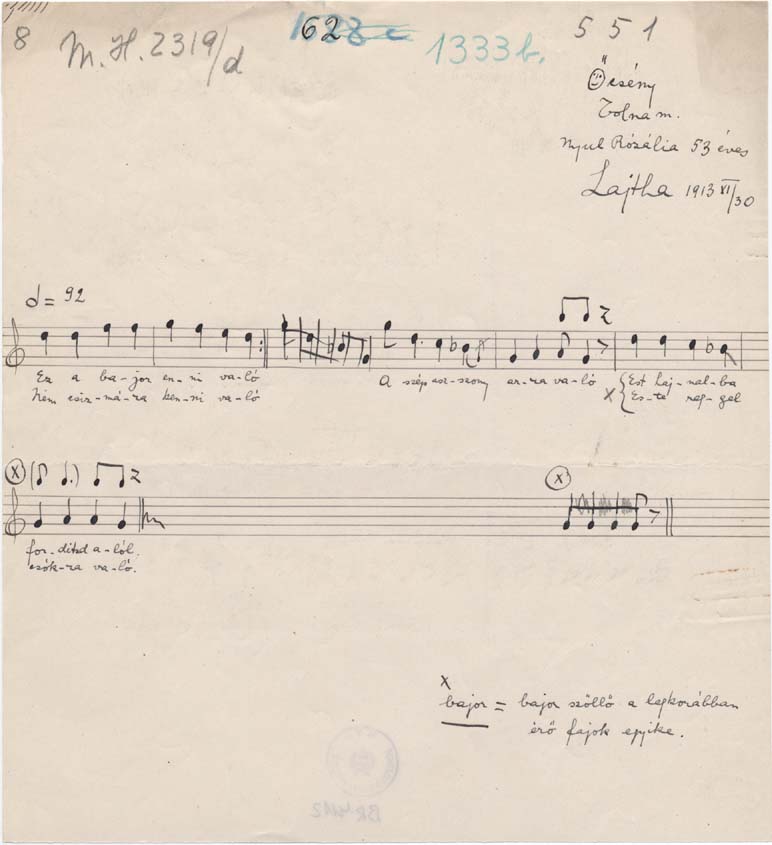 8
M. H. 2319/d
162
1333 b.
551
Őcsény
Tolna m.
Nyul Rózália 53 éves
Lajtha 1913 XI/30
= 92
Ez a ba-jor en-ni va-ló A szép asz-szony ar-ra va-ló Est haj-nal-ba
Nem csiz-má-ra ken-ni va-ló x Es-te reg-gel
x x
for-dítsd a-lól.
csók-ra va-ló.
x
bajor = bajor szőllő a legkorábban
érő fajok egyike.